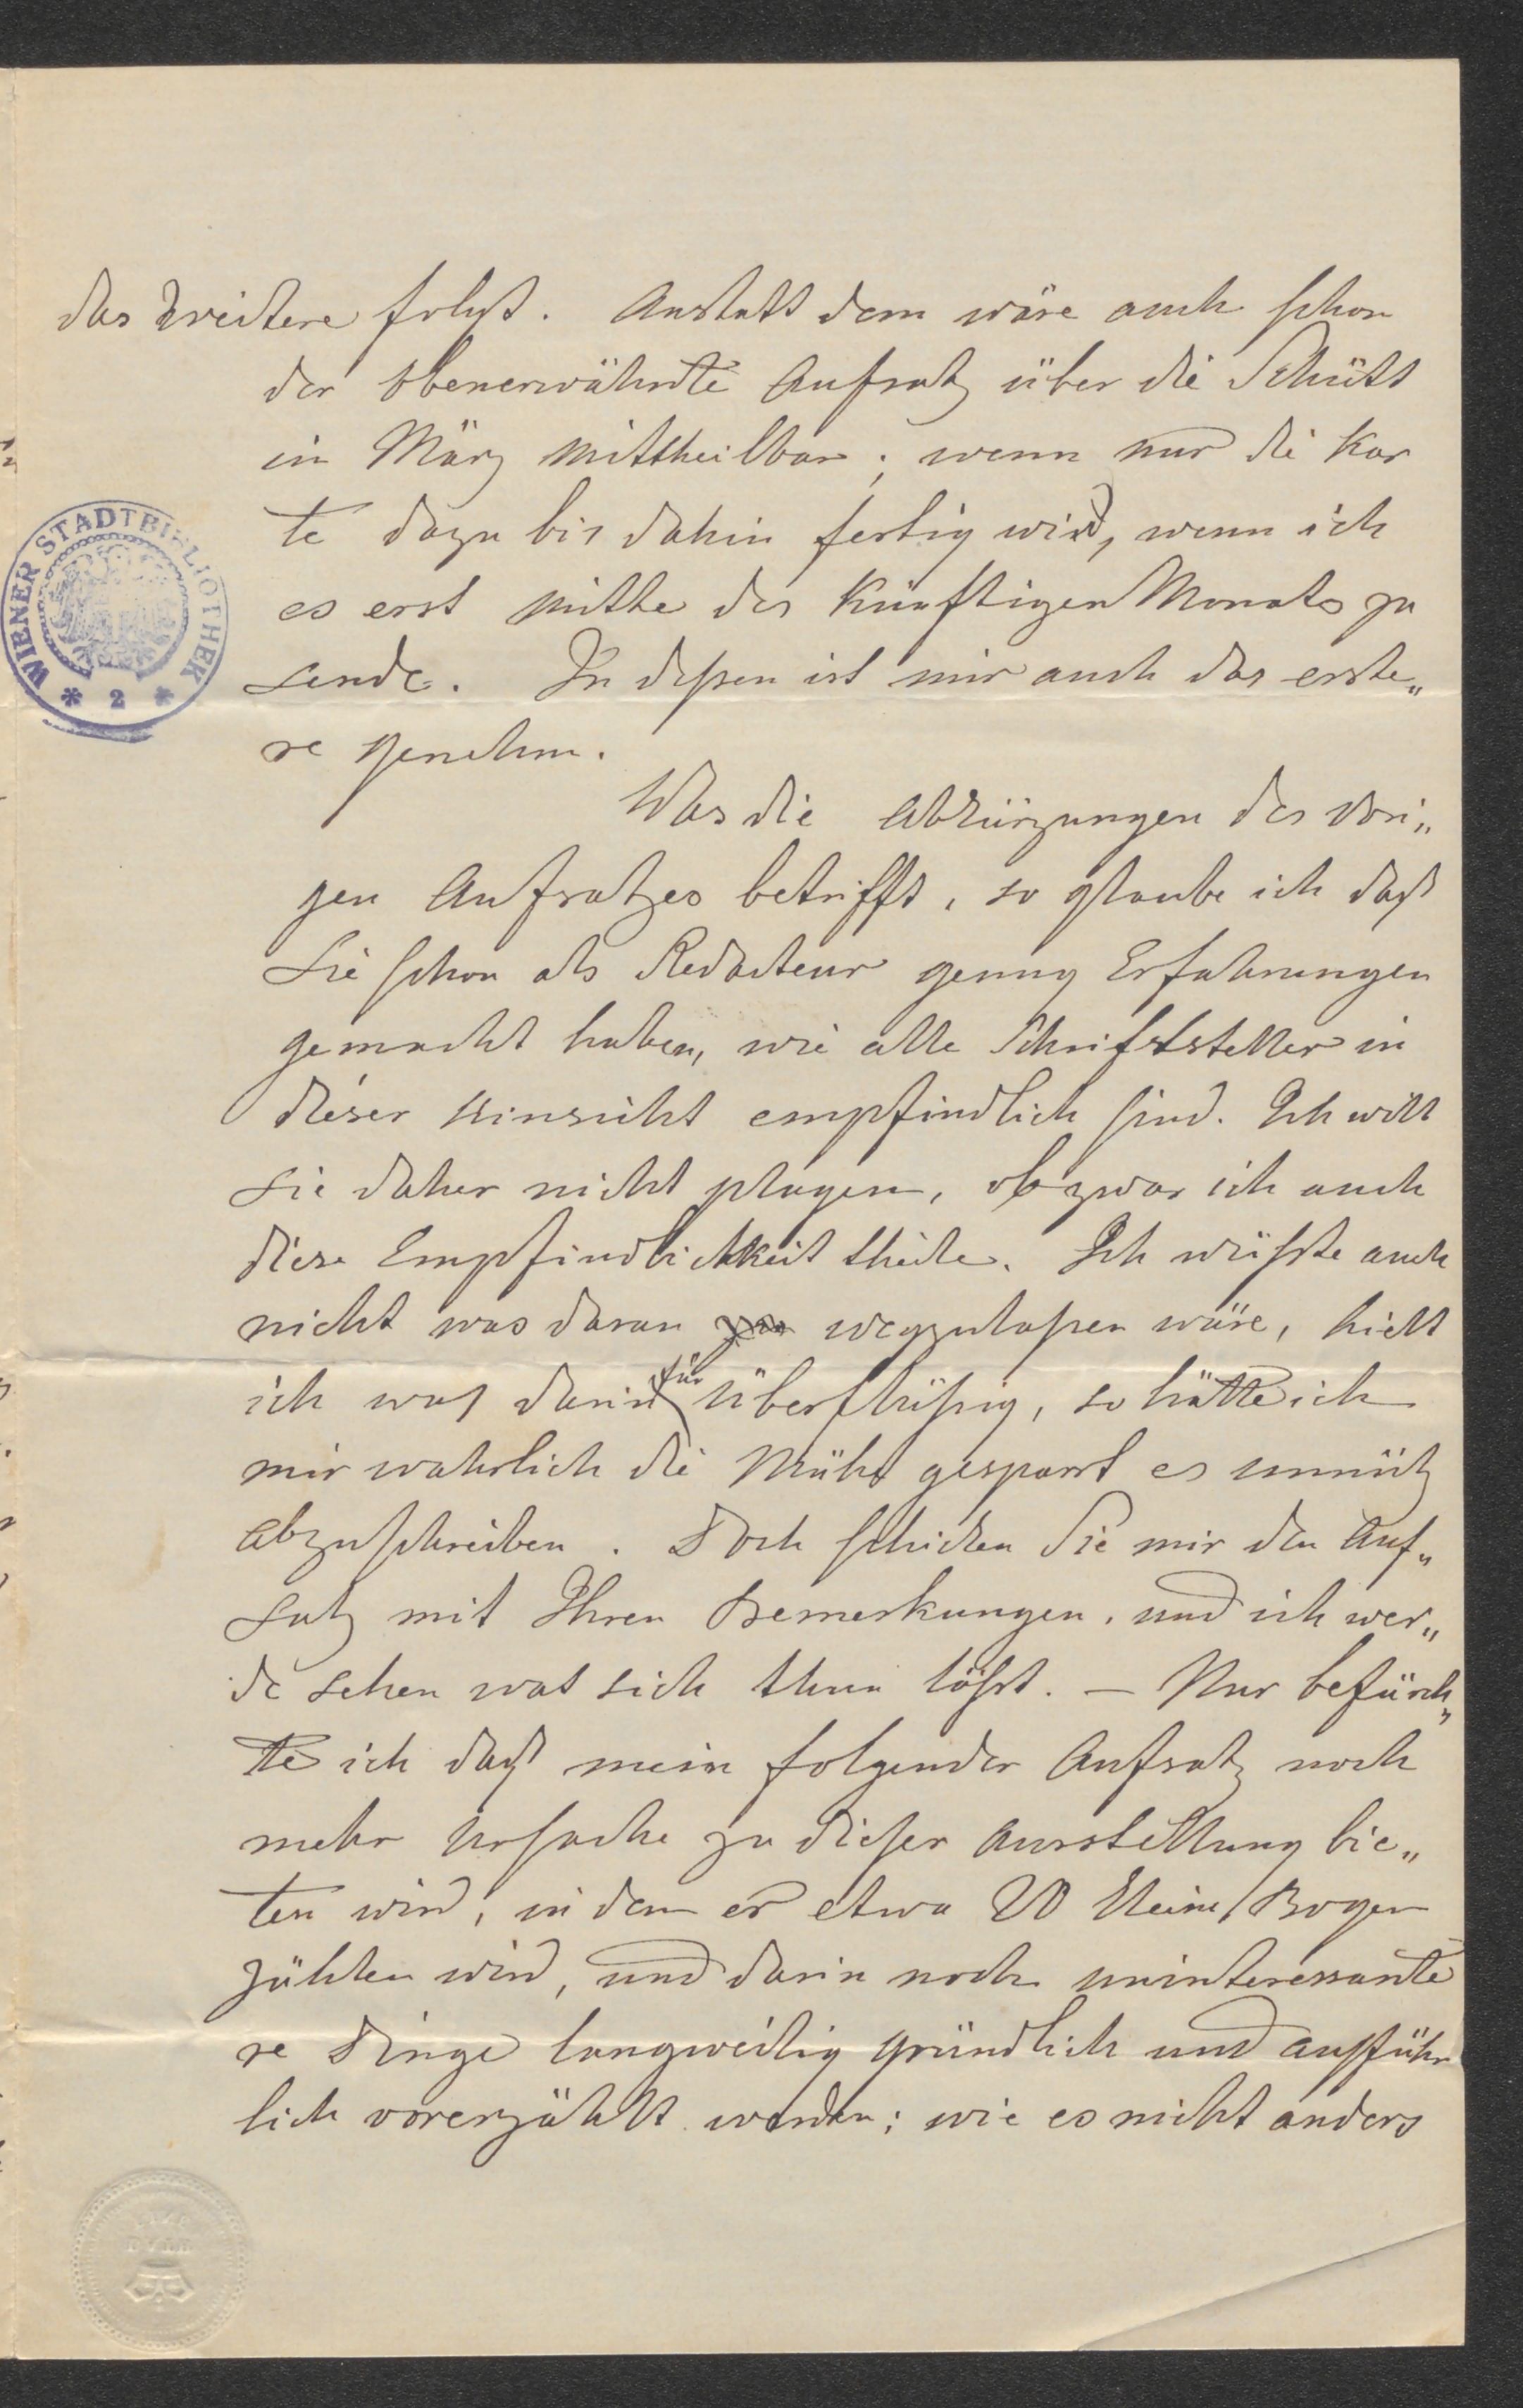 das Zweitere folgt. Anstatt dem wäre auch schon
der obenerwähnte Aufsatz über die Schütt
in März mittheilbar; wenn nur die Kar
te dazu bis dahin fertig wird, wenn ich
es erst Mitte des künftigen Monats zu
WIENER STADTBIBLIOTHEK
* 2 *
sende. In deßen ist mir auch das erste„
re genehm.
Was die Abkürzungen des vori„
gen Aufsatzes betrifft, so glaube ich daß
Sie schon als Redacteur genug Erfahrungen
gemacht haben, wie alle Schriftsteller in
dieser Hinsicht empfindlich sind. Ich will
Sie daher nicht plagen, obzwar ich auch
diese Empfindlichkeit theile. Ich wüßte auch
nicht was daran wegzulaßen wäre, hielt
ich was darin für überflüßig, so hätte ich
mir wahrlich die Mühe gespart es unnütz
abzuschreiben. Doch schicken Sie mir den Auf„
satz mit Ihren Bemerkungen, und ich wer„
de sehen was sich thun läßt. — Nur befürch„
te ich daß mein folgender Aufsatz noch
mehr Ursache zu dieser Ausstellung bie„
ten wird, in dem er etwa 20 kleine Bogen
zählen wird, und darin noch uninteressante
re Dinge langweilig gründlich und ausführ
lich vorerzählt werden; wie es nicht anders